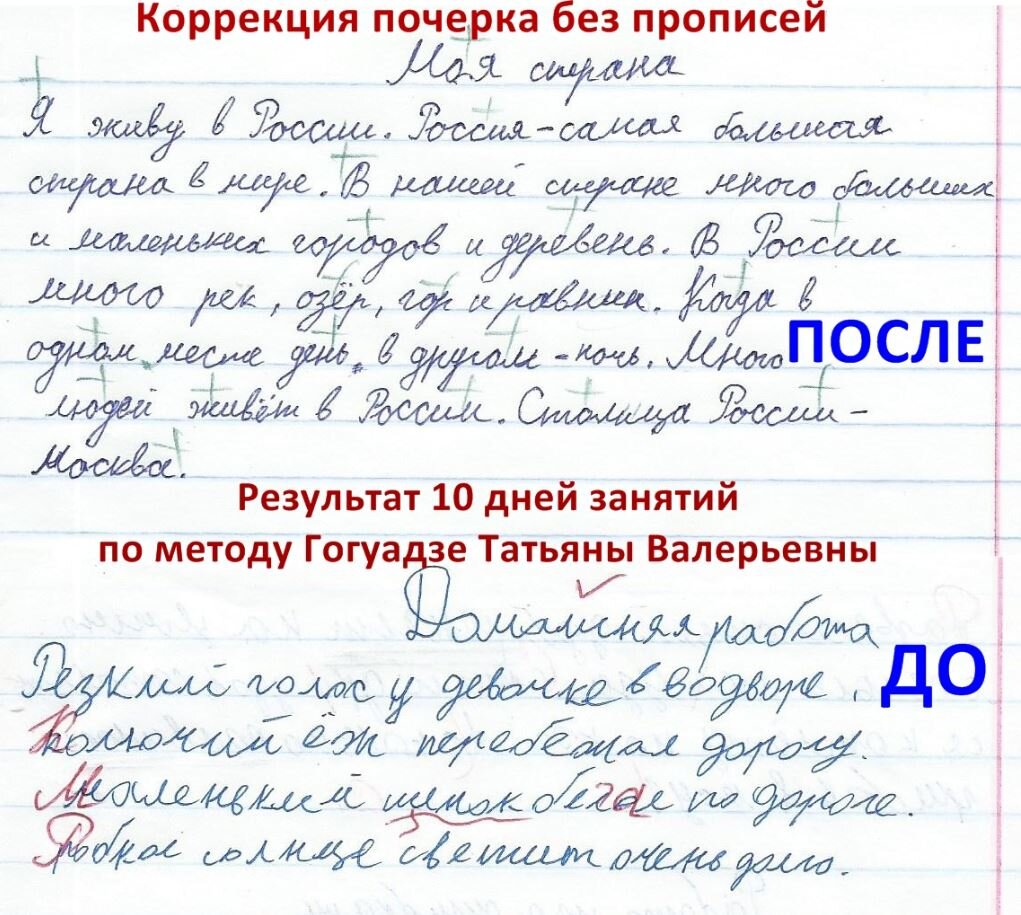 Коррекция почерка без прописей
Моя страна
Я живу в России. Россия-самая большая
страна в мире. В нашей стране много больших
и маленьких городов и деревень. В России
много рек, озёр, гор и равнин. Когда в
одном месте день, в другом -ночь. Много
людей живёт в России. Столица России-
Москва.
ПОСЛЕ
Результат 10 дней занятий
по методу Гогуадзе Татьяны Валерьевны
Домашняя работа
ДО
Резкий голос у девочке в водворе.
Колючий ёж перебежал дорогу.
Маленький щенок бегае по дороге.
Робкое солнце светит очень долго.